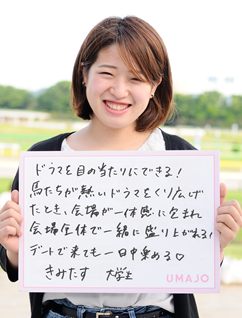 ドラマを目の当たりにできる!
馬たちが熱いドラマをくり広げ
たとき、会場が一体感に包まれ
会場全体で一緒に盛り上がれる!
デートで来ても一日中楽める♡
きみたす 大学生
UMAJO